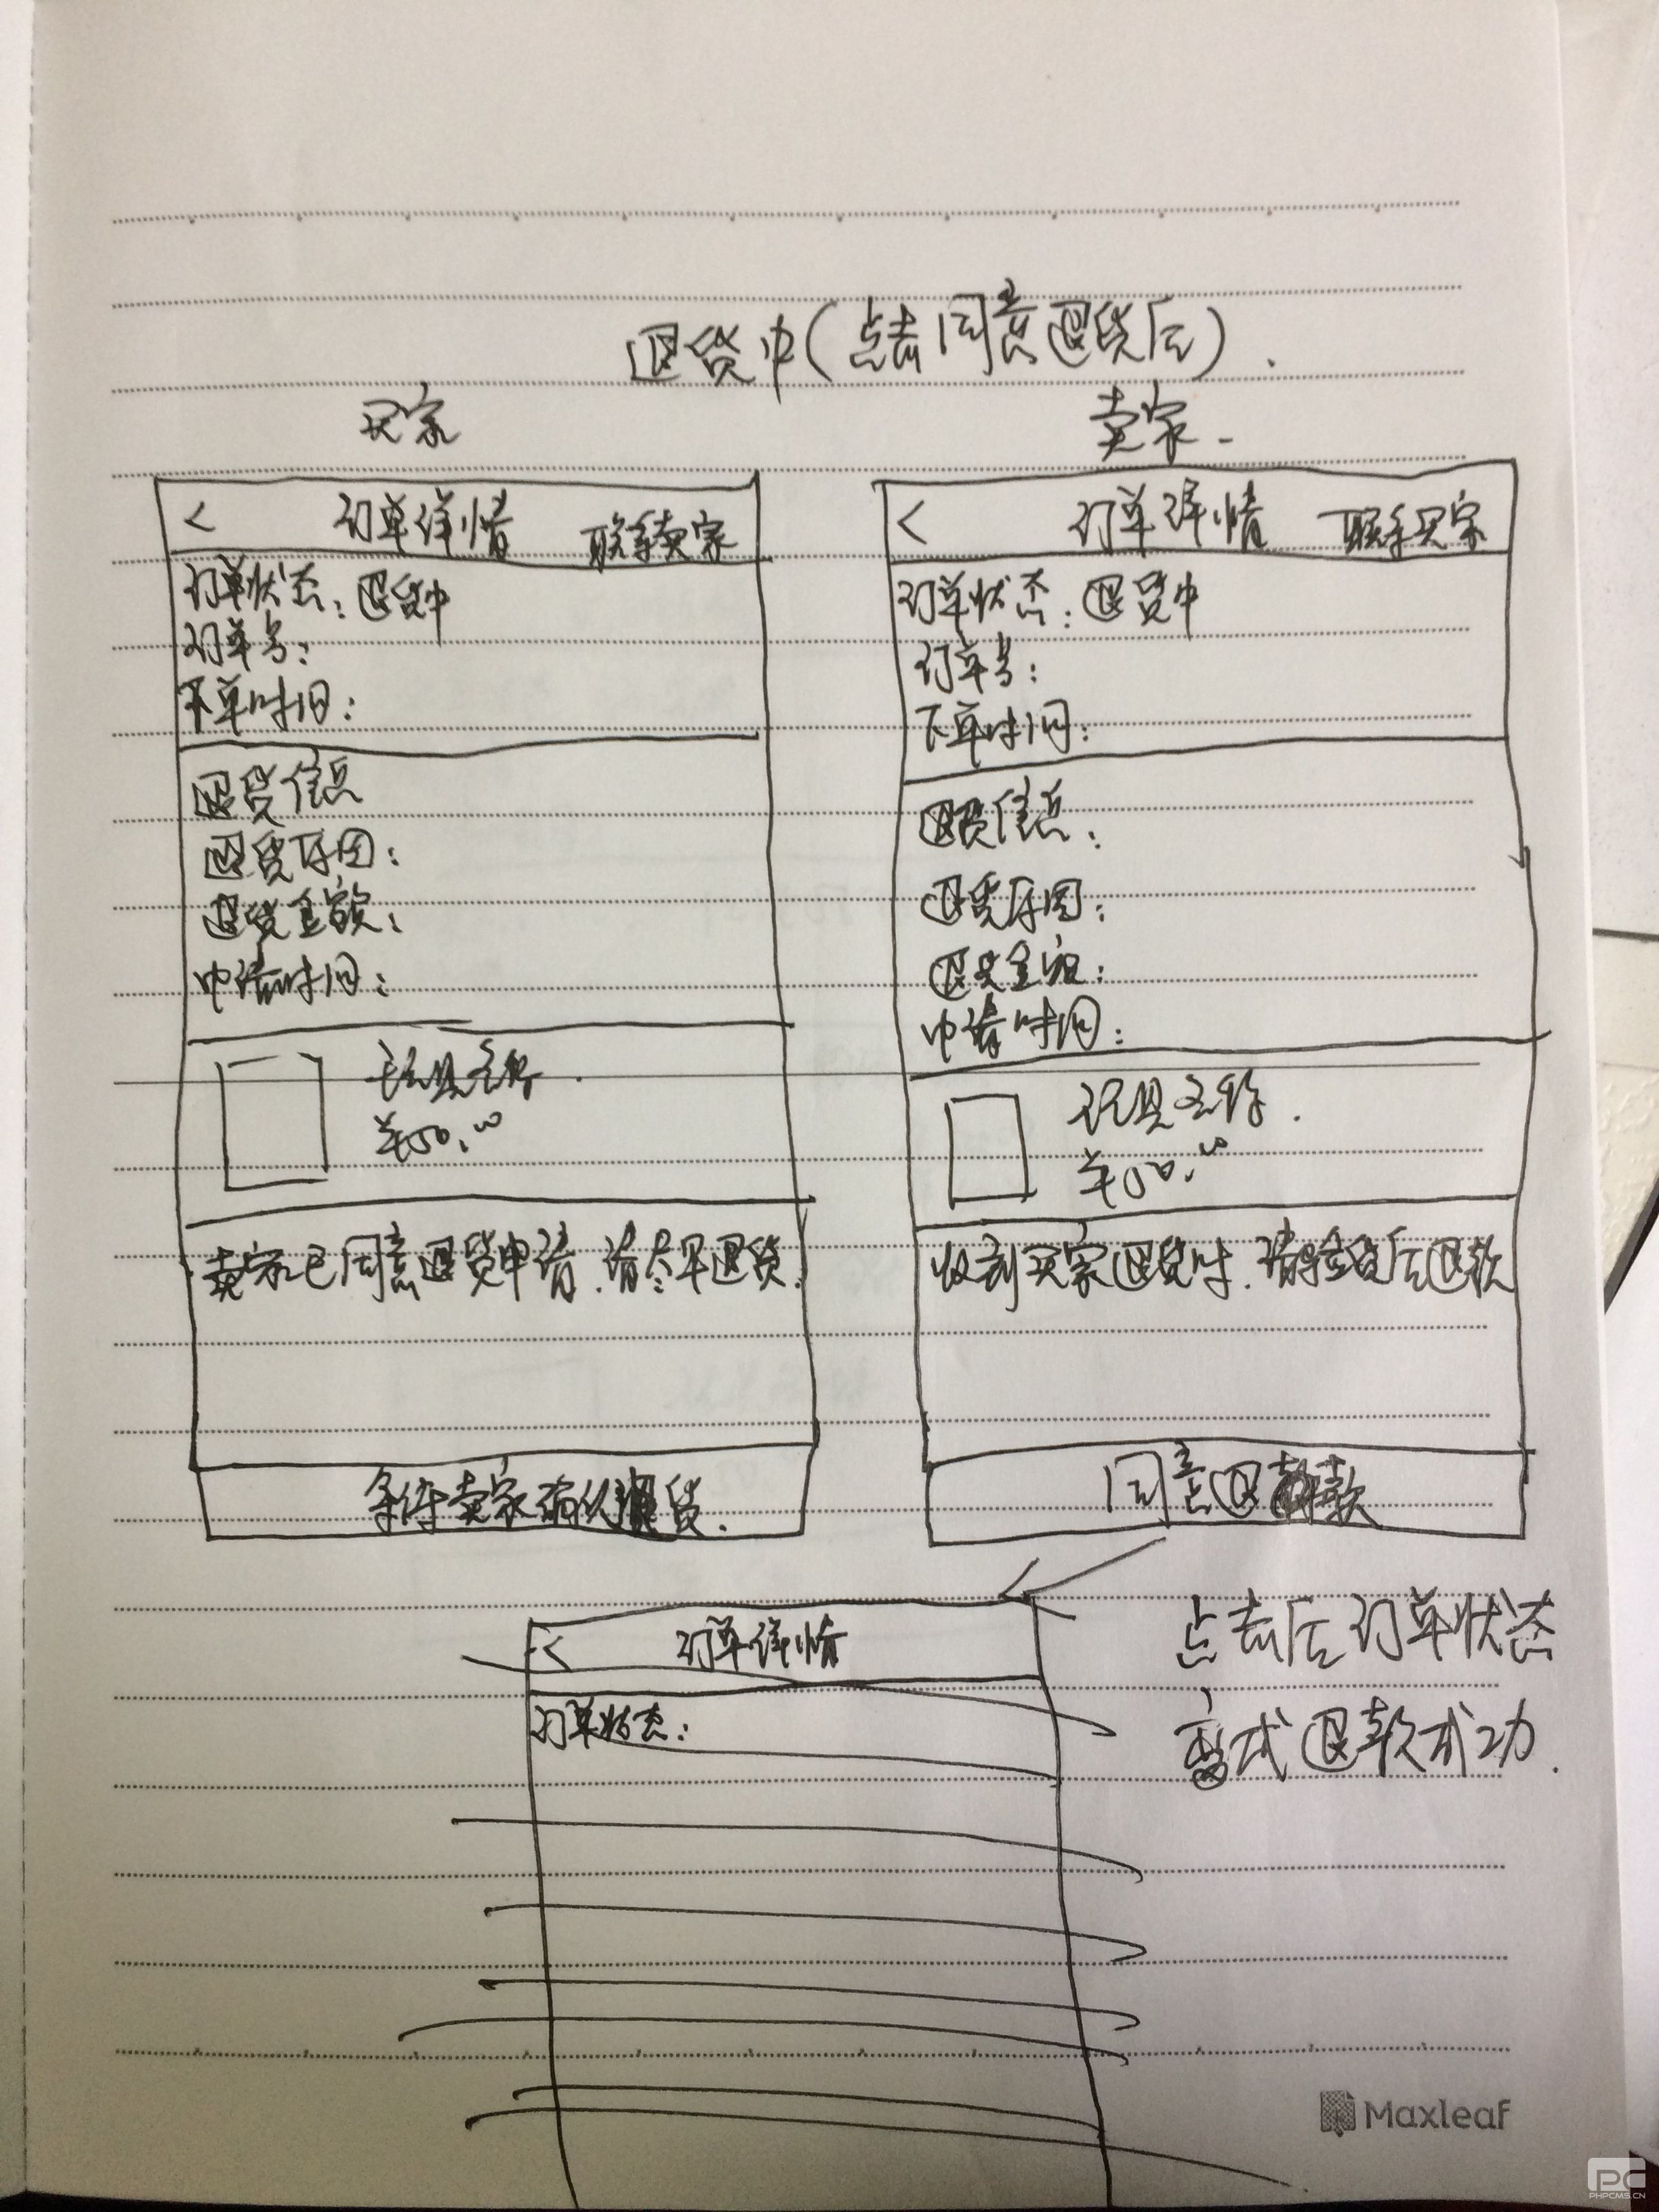 退货中(点击同意退货后).
买家
卖家
< 订单详情 联系卖家
订单状态:退货中
订单号:
下单时间:
退货信息
退货原因:
退货金额:
申请时间:
玩具名称.
¥50.00
卖家已同意退货申请.请尽早退货.
等待卖家确认退货.
< 订单详情 联系买家
订单状态:退货中
订单号:
下单时间:
退货信息:
退货原因:
退货金额:
申请时间:
玩具名称.
¥50.00
收到买家退货时.请验货后退款
同意退款
< 订单详情
订单状态:
点击后订单状态
变成退款成功.
Maxleaf
PC
PHPCMS.CN